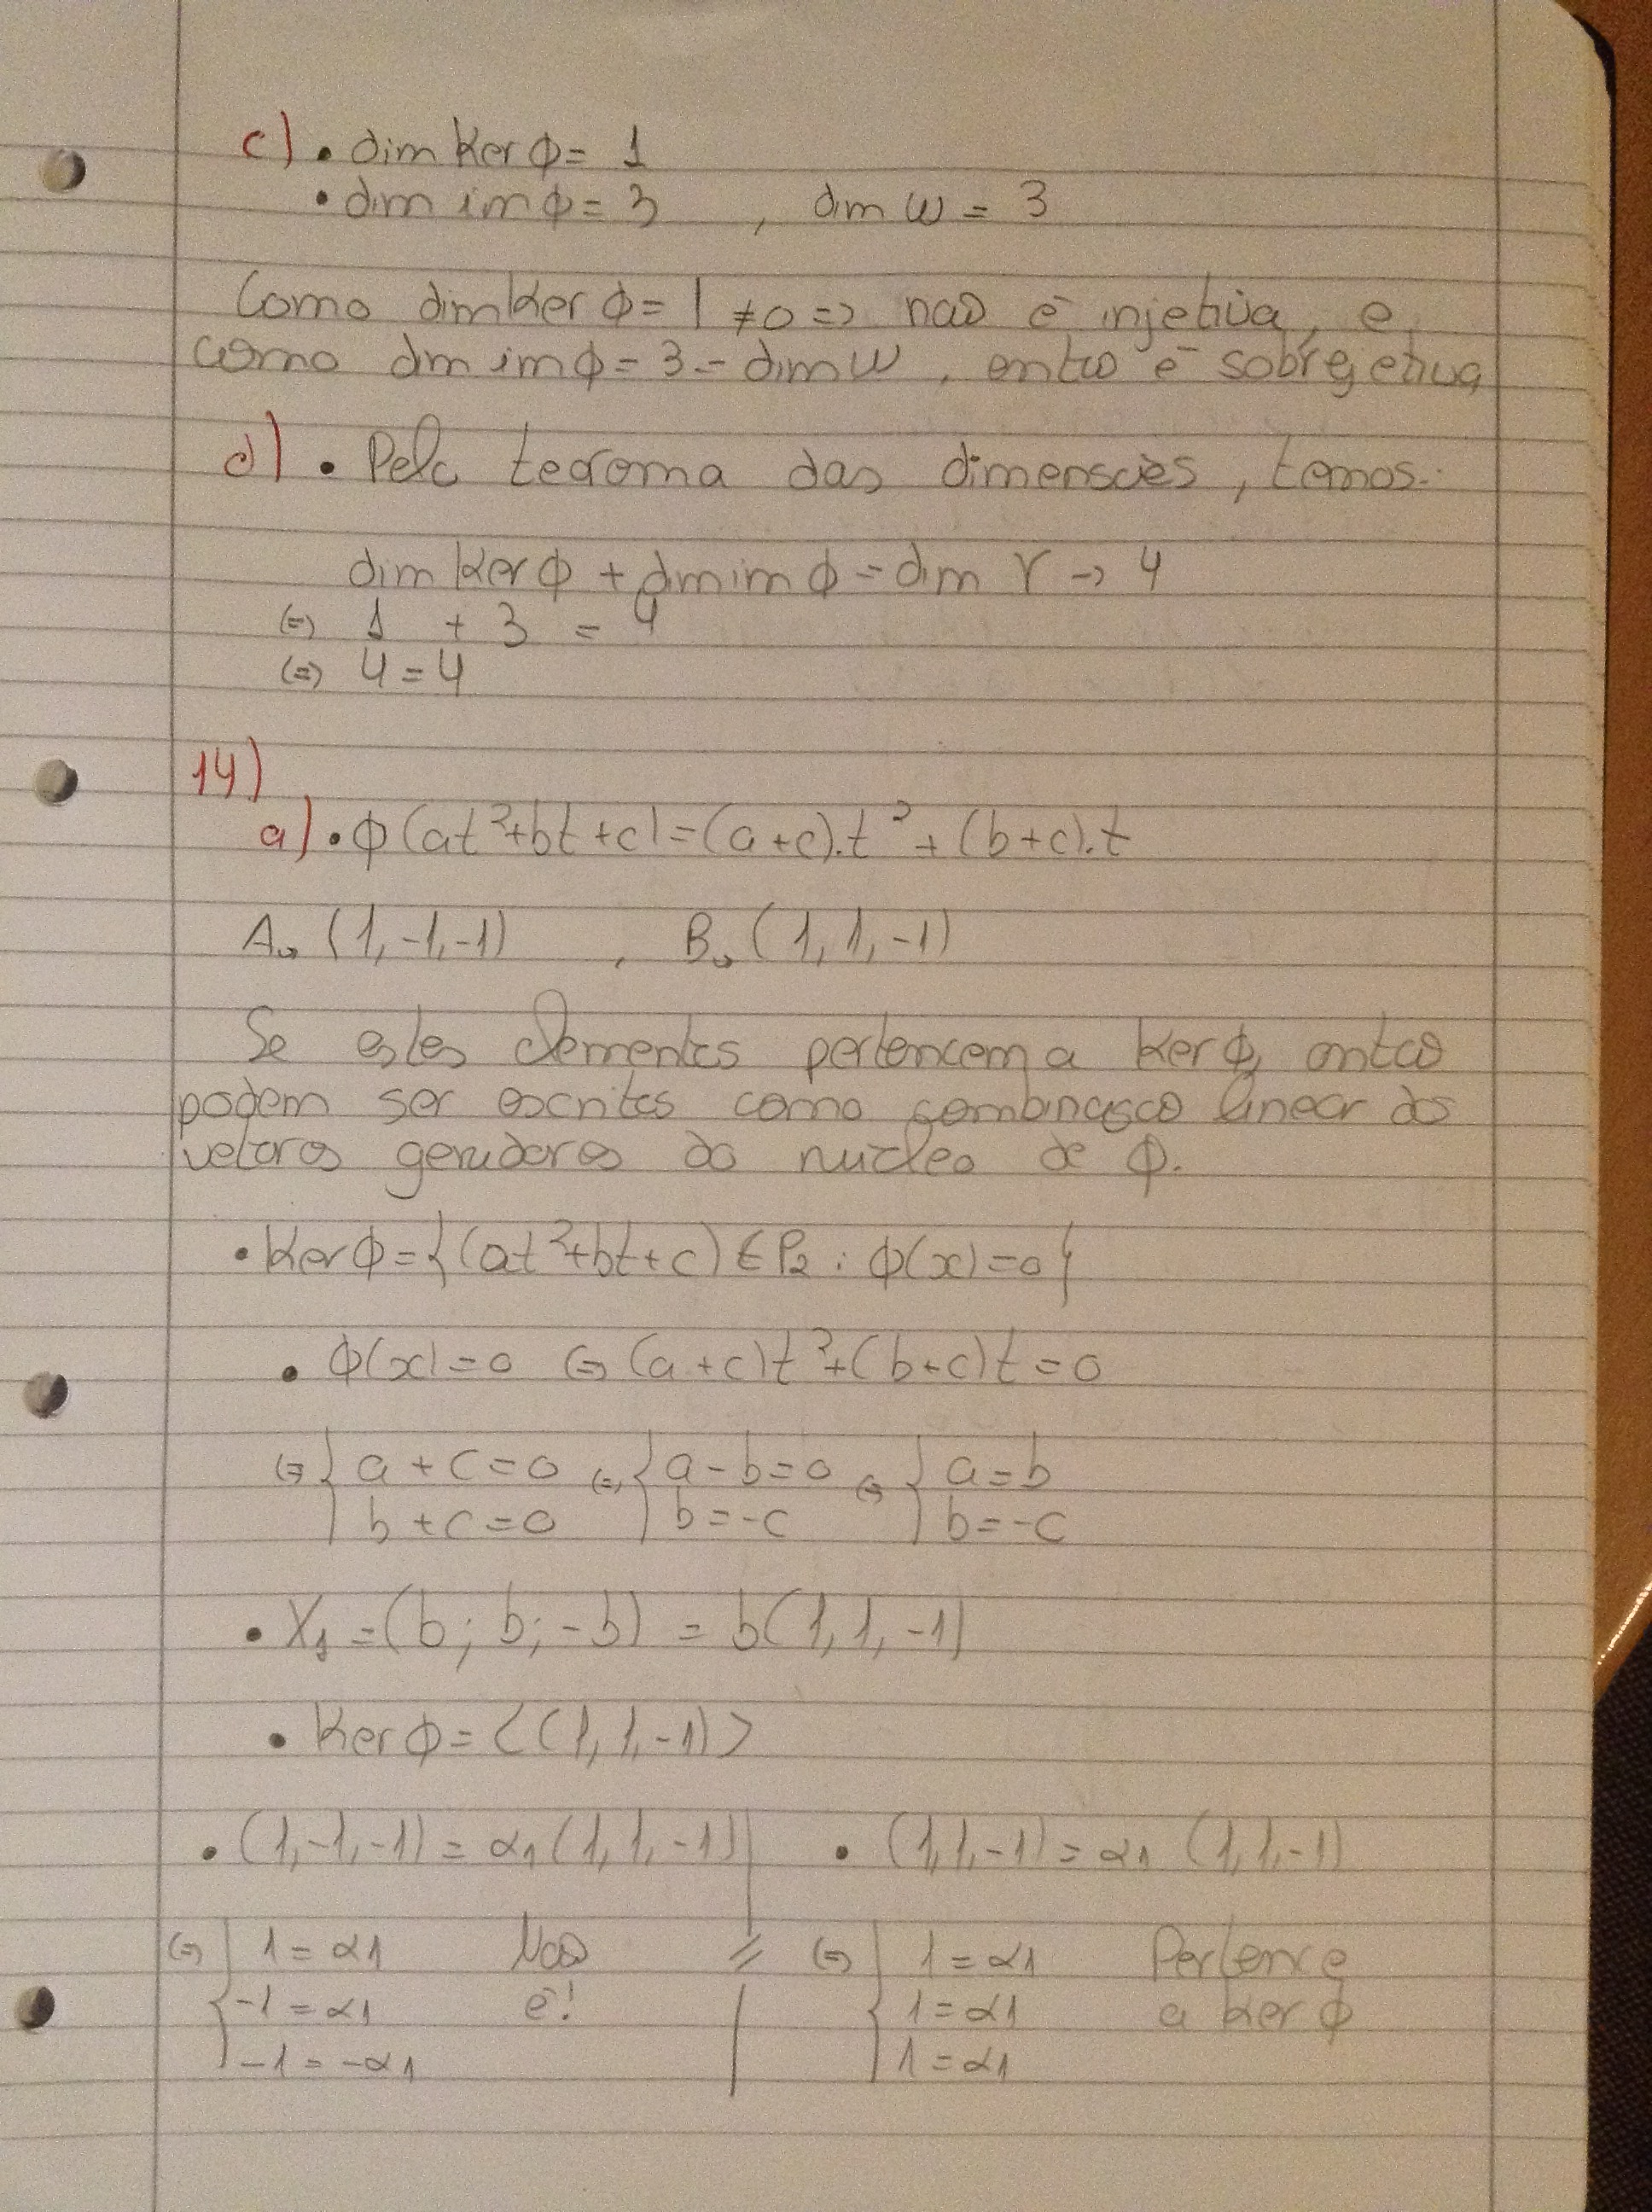 c) • dim Ker ϕ = 1
• dim im ϕ = 3 , dim W = 3
Como dim Ker ϕ = 1 ≠ 0 => não é injetiva, e
como dim im ϕ = 3 = dim W, então é sobrejetiva
d) • Pelo teorema das dimensões, temos:
dim Ker ϕ + dim im ϕ = dim V → 4
(=) 1 + 3 = 4
(=) 4 = 4
14)
a) • ϕ(at²+bt+c) = (a+c).t² + (b+c).t
A → (1,-1,-1) , B → (1,1,-1)
Se estes elementos pertencem a Ker ϕ, então
podem ser escritos como combinação linear dos
vetores geradores do núcleo de ϕ.
• Ker ϕ = {(at²+bt+c) ∈ P₂ : ϕ(x) = 0}
• ϕ(x) = 0 (=) (a+c)t² + (b+c)t = 0
(=) { a + c = 0 (=) { a - b = 0 (=) { a = b
b + c = 0 b = -c b = -c
• X₁ = (b; b; -b) = b(1,1,-1)
• Ker ϕ = <(1,1,-1)>
• (1,-1,-1) = α₁(1,1,-1) • (1,1,-1) = α₁ (1,1,-1)
(=) { 1 = α1 Não // (=) { 1 = α1 Pertence
-1 = α1 é! 1 = α1 a Ker ϕ
-1 = -α1 1 = α1